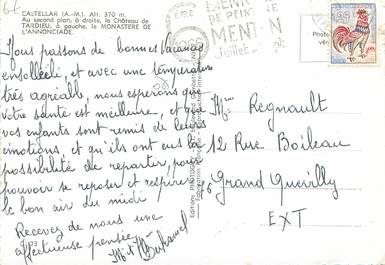 CASTELLAR (A.-M.). Alt. 370 m.
Au second plan, à droite, le Château de
TARDIEU, à gauche, le MONASTERE DE
L'ANNONCIADE.
Nous passons de bonnes vacances
ensoleillé, et avec une température
très agréable, nous espérons que
votre santé est meilleure, et que
vos enfants sont remis de leurs
émotions, et qu'ils ont eus la
possibilité de repartir, pour
pouvoir se reposer et respirer
le bon air du midi
Recevez de nous une
affectueuse pensée
Mr et Mme Duhamel
DE PEINTURE
MENTON
Juillet
0,25
Mme Regnault
12 Rue Boileau
Grand Quevilly
EXT